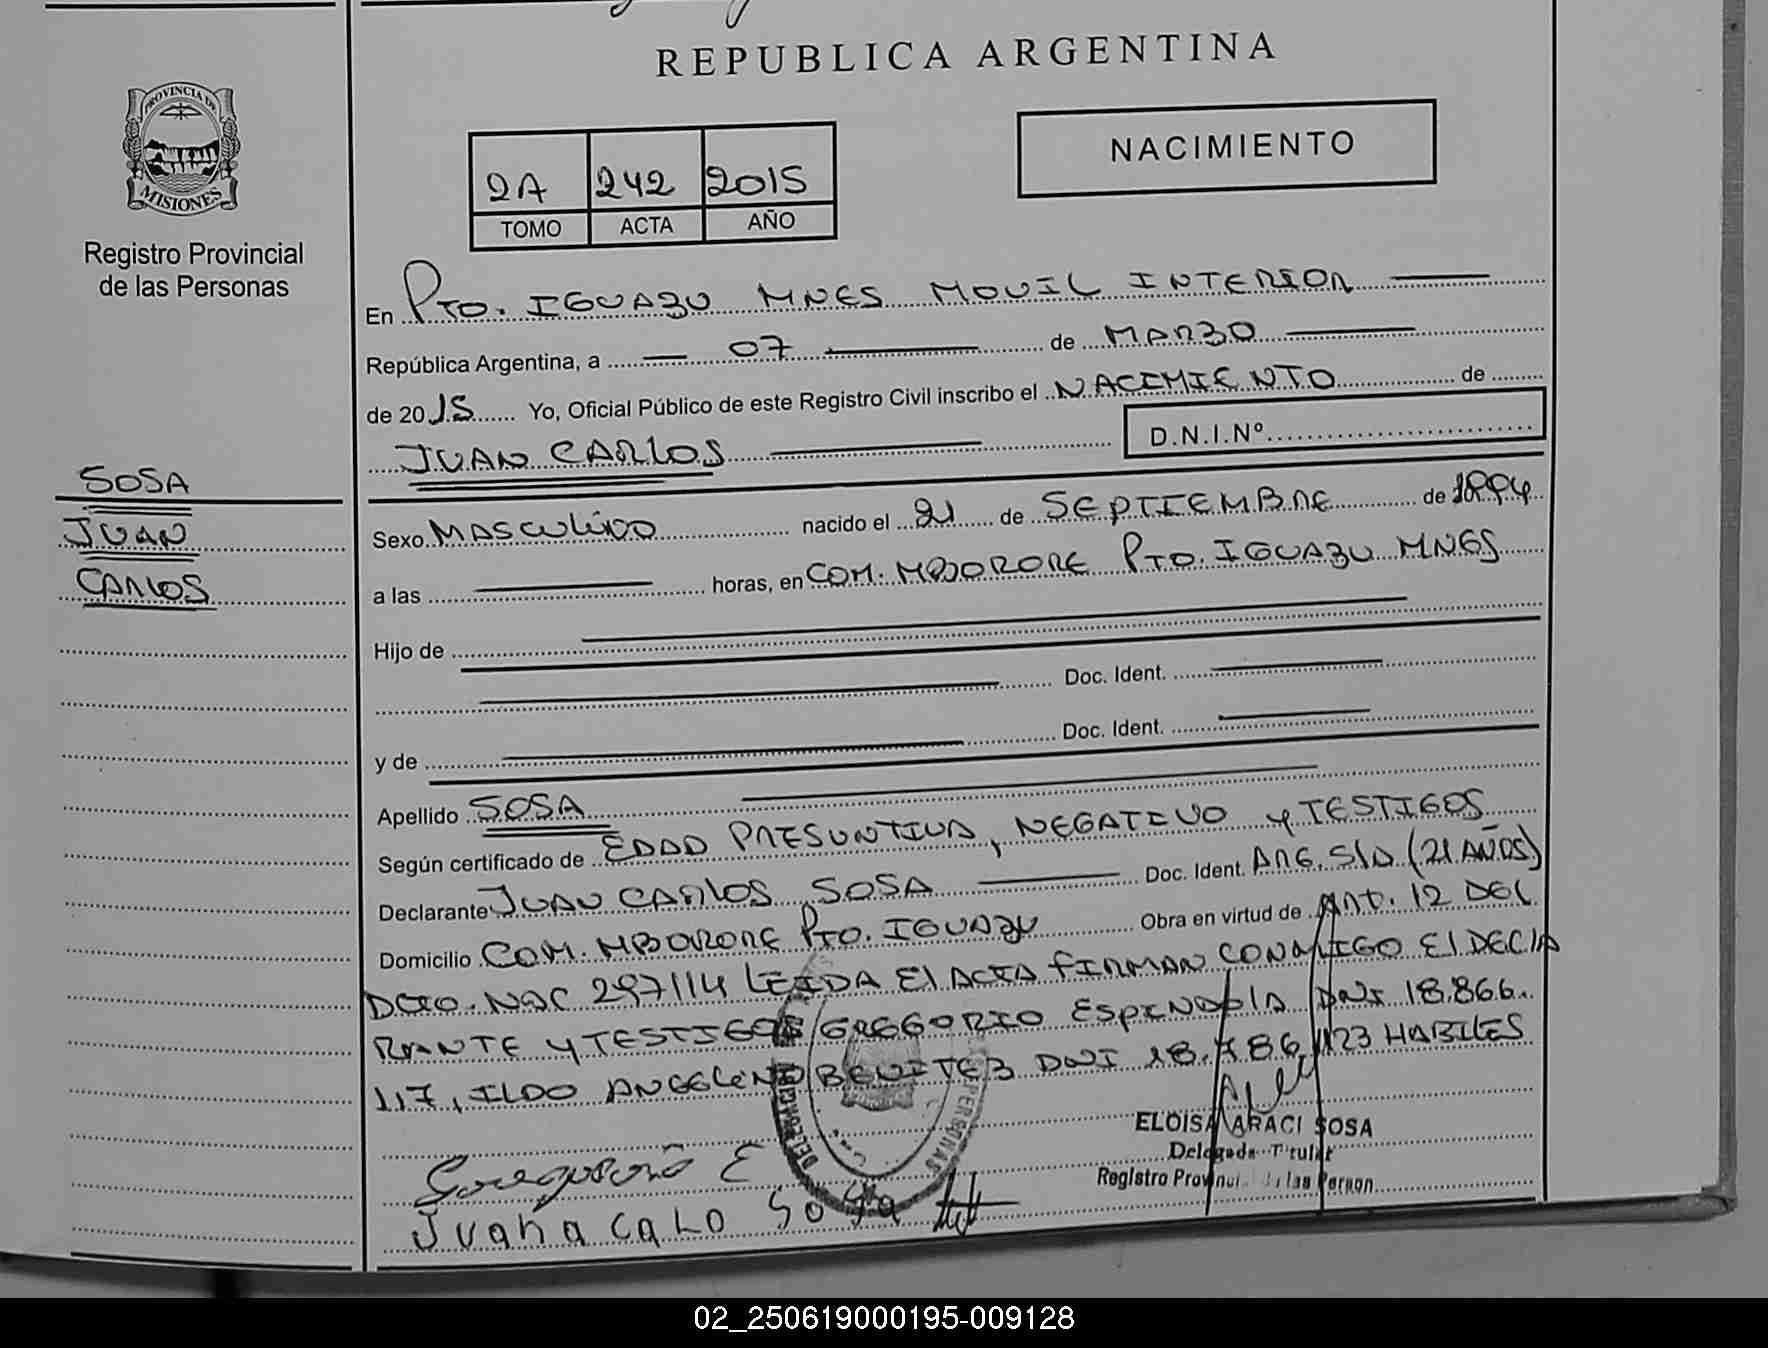 REPUBLICA ARGENTINA
PROVINCIA DE
MISIONES
Registro Provincial
de las Personas
2A 242 2015
TOMO ACTA AÑO
NACIMIENTO
En PTO. IGUAZU MNES MOVIL INTERIOR
República Argentina, a 07 de MARZO
de 2015 Yo, Oficial Público de este Registro Civil inscribo el NACIMIENTO de
JUAN CARLOS D.N.I.Nº
SOSA
JUAN
CARLOS
Sexo MASCULINO nacido el 21 de SEPTIEMBRE de 1994
a las horas, en COM. MBORORE PTO. IGUAZU MNES
Hijo de
Doc. Ident.
y de Doc. Ident.
Apellido SOSA
Según certificado de EDAD PRESUNTIVA, NEGATIVO y TESTIGOS
Declarante JUAN CARLOS SOSA Doc. Ident. ARG. S/D (21 AÑOS)
Domicilio COM. MBORORE PTO. IGUAZU Obra en virtud de ART. 12 DEL
DCTO. NAC 297/14 LEIDA El ACTA FIRMAN CONMIGO El DECLA
RANTE y TESTIGOS GREGORIO ESPINDOLA DNI 18.866.
117, ILDO ANGELINO BENITEZ DNI 18.786.123 HABILES
ELOISA ARACI SOSA
Delegada Titular
Registro Provincial de las Person
Gregorio E
Juana CaLo Sosa
DELEGACION
PERSONAS
02_250619000195-009128